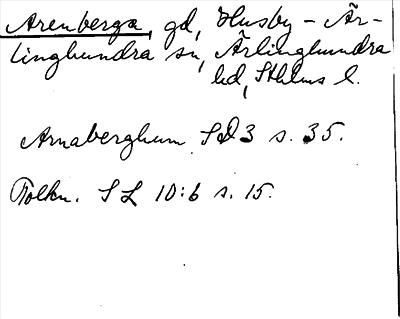 Arenberga, gd, Husby-Är-
linghundra sn, Ärlinghundra
hd, Sthlms l.
Arnaberghum SD 3 s. 35.
Tolkn. SL 10:6 s. 15.